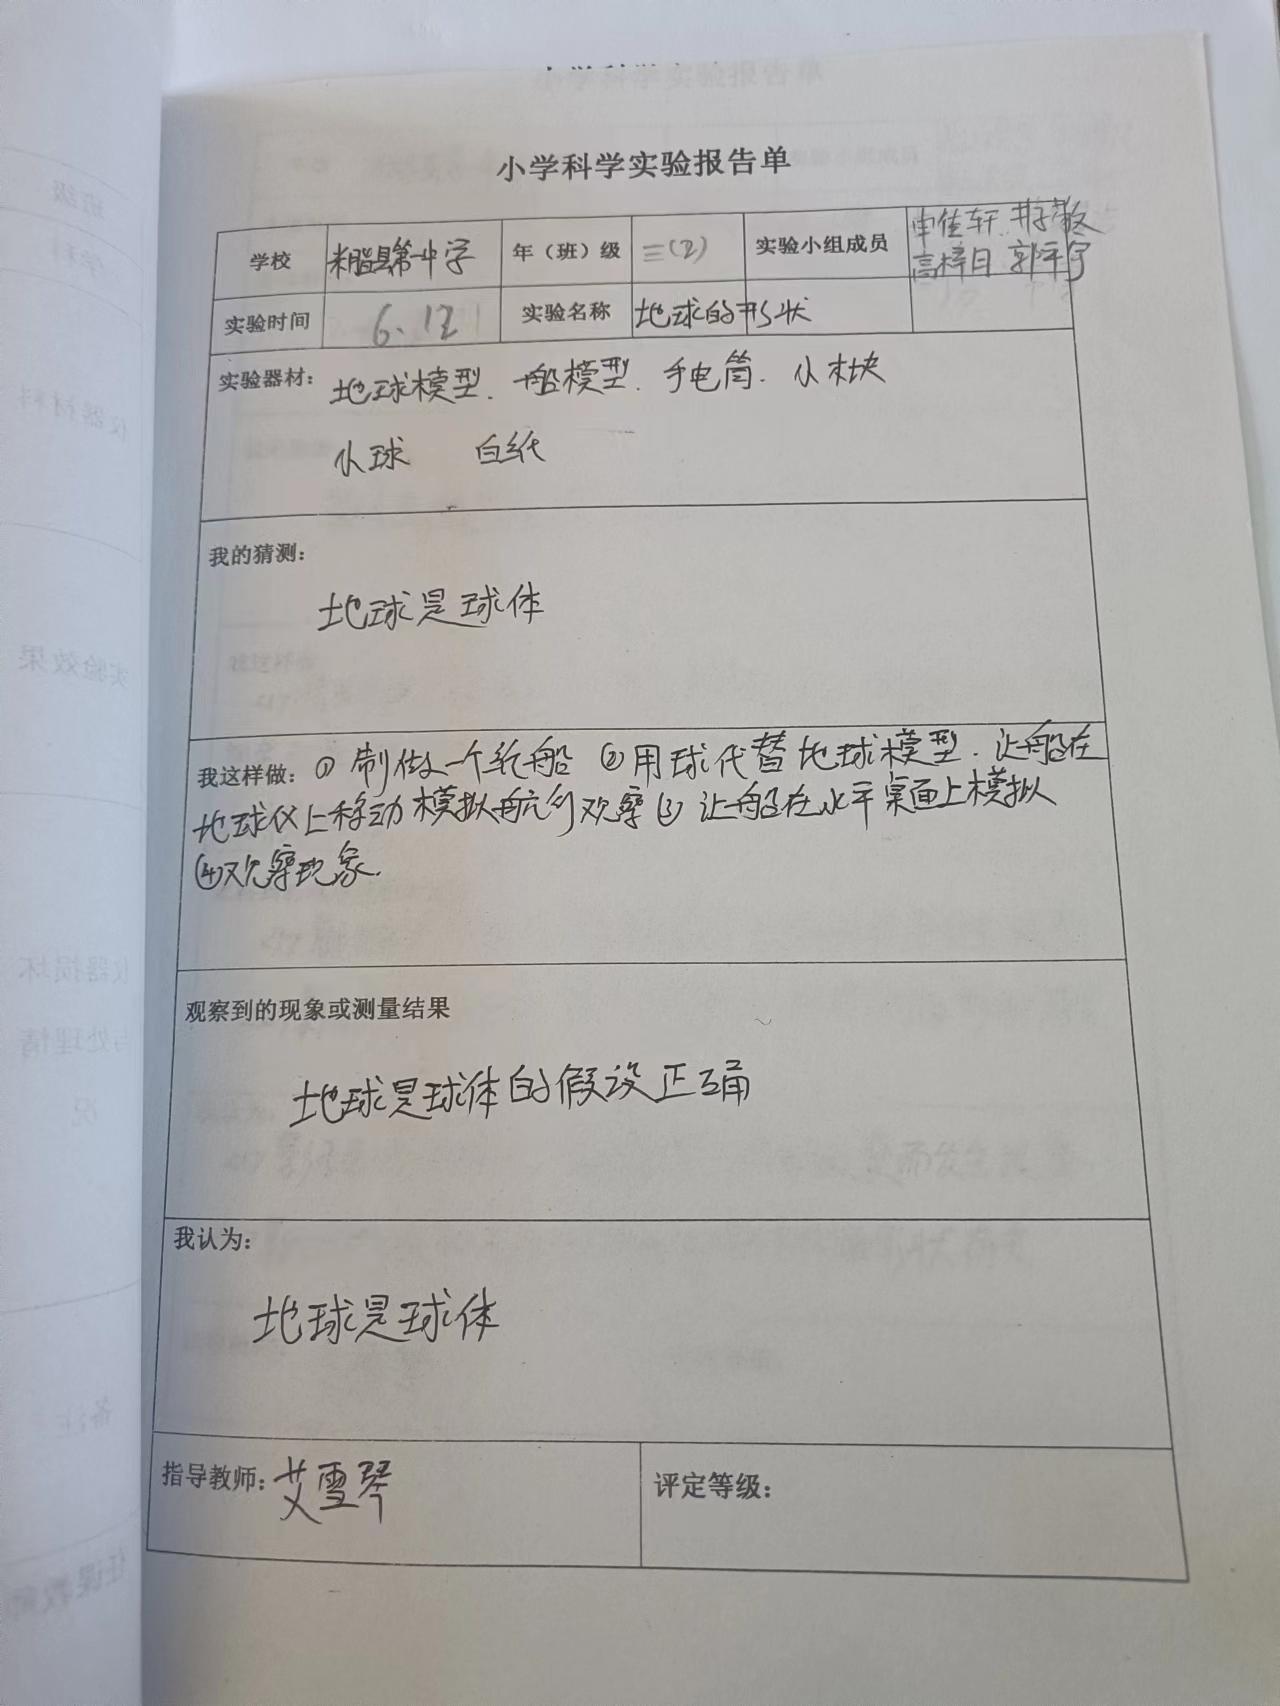 小学科学实验报告单
学校 米脂县第一中学 年（班）级 三(2) 实验小组成员 申佳轩
高梓日 郭平宇
实验时间 6.12 实验名称 地球的形状
实验器材： 地球模型. 船模型. 手电筒. 小木块
小球 白纸
我的猜测：
地球是球体
我这样做：① 制做一个纸船 ②用球代替地球模型. 让船在
地球仪上移动模拟航行观察③ 让船在水平桌面上模拟
④观察现象.
观察到的现象或测量结果
地球是球体的假设正确
我认为：
地球是球体
指导教师：艾雪琴 评定等级：
班级
学科
仪器材料
实验效果
仪器损坏
与处理情
况
备注
任课教师